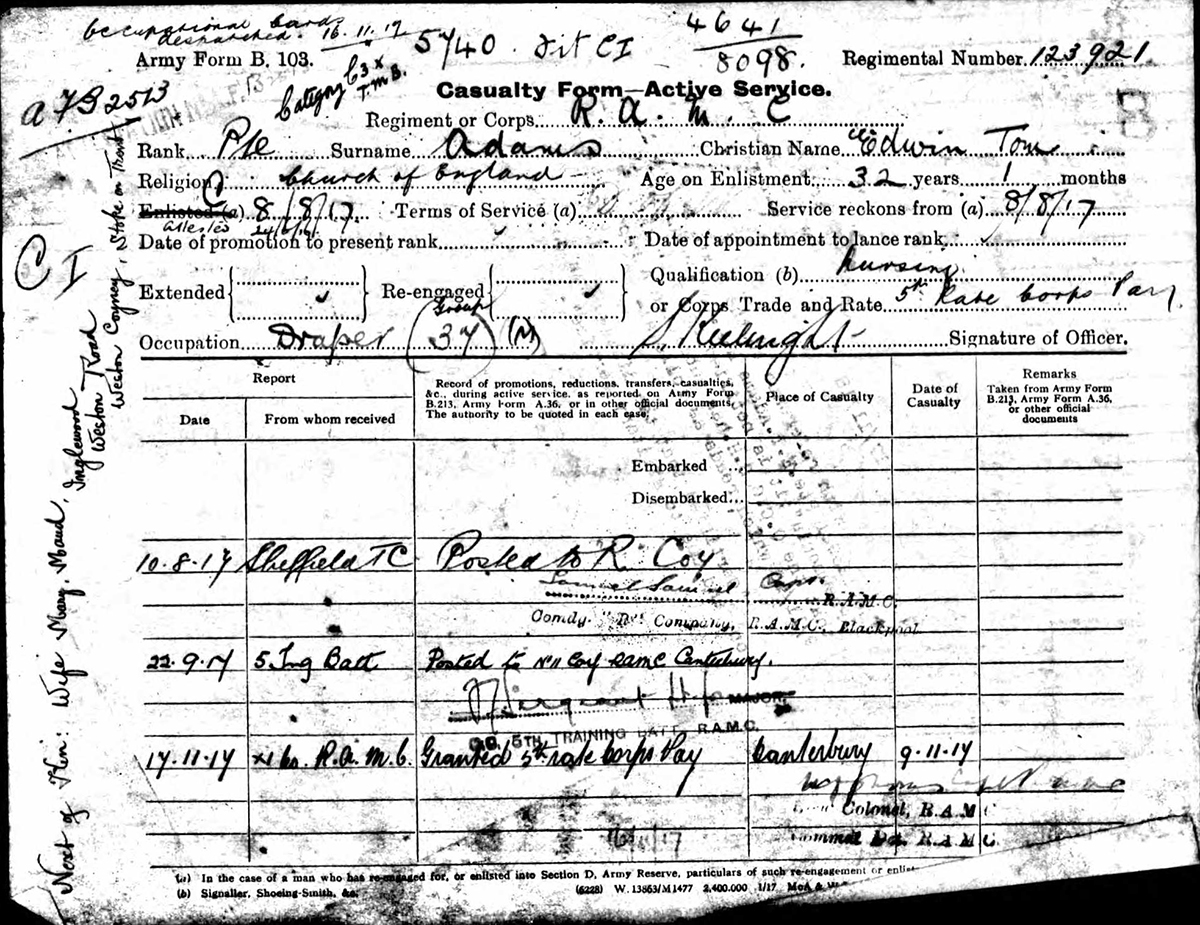 Occupational Card
despatched. 16.11.17
Army Form B. 103.
5740. Fit CI
4641
8098.
Regimental Number 123921.
AFB 2513
Category C3 x
T.M.B.
Casualty Form—Active Service.
Regiment or Corps R. A. M. C
Rank Pte Surname Adams Christian Name Edwin Tom
Religion Church of England Age on Enlistment 32 years 1 months
Enlisted (a) 8/8/17. Terms of Service (a) Service reckons from (a) 8/8/17
attested
Date of promotion to present rank Date of appointment to lance rank
C I
Extended Re-engaged Qualification (b) Nursing
or Corps Trade and Rate 5th Rate Corps Pay.
Occupation Draper (Group 37) (M) Signature of Officer.
Report
Date
From whom received
Record of promotions, reductions, transfers, casualties,
&c., during active service, as reported on Army Form
B.213, Army Form A.36, or in other official documents.
The authority to be quoted in each case.
Place of Casualty
Date of
Casualty
Remarks
Taken from Army Form
B.213, Army Form A.36,
or other official
documents
Embarked
Disembarked
10.8.17 Sheffield TC Posted to R. Coy
Samuel Samuel Capt.
R.A.M.C.
Comdg. "R" Company, R.A.M.C., Blackpool
22.9.17 5 Trg Batt Posted to No 11 Coy RAMC Canterbury.
MAJOR
O.C. 5TH TRAINING BATT. R.A.M.C.
17.11.17 R.A.M.C. Granted 5th rate Corps Pay Canterbury 9.11.17
Colonel, R.A.M.C
R.A.M.C.
16/11/17
(a) In the case of a man who has re-engaged for, or enlisted into Section D, Army Reserve, particulars of such re-engagement or enlist
(b) Signaller, Shoeing-Smith, &c.
(6228) W.13863/M1477 2,400,000 1/17 McA & W
Next of Kin: Wife Mary Maud, Inglewood
Weston Road
Weston Coyney, Stoke on Trent